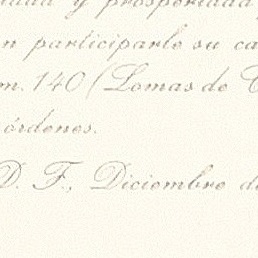 y prosperidad
n participarle su ca
m. 140 (Lomas de C
órdenes.
D. F., Diciembre de